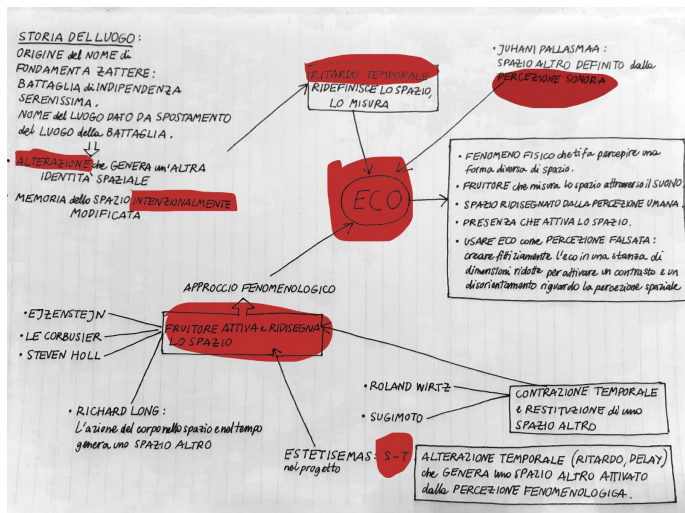 STORIA DEL LUOGO:
ORIGINE del NOME di
FONDAMENTA ZATTERE:
BATTAGLIA di INDIPENDENZA
SERENISSIMA.
NOME del LUOGO DATO DA SPOSTAMENTO
del LUOGO della BATTAGLIA.
• ALTERAZIONE che GENERA un'ALTRA
IDENTITA' SPAZIALE
• MEMORIA dello SPAZIO INTENZIONALMENTE
MODIFICATA
RITARDO TEMPORALE
RIDEFINISCE LO SPAZIO,
LO MISURA
• JUHANI PALLASMAA:
SPAZIO ALTRO DEFINITO dalla
PERCEZIONE SONORA
ECO
• FENOMENO FISICO che ti fa percepire una
forma diversa di spazio.
• FRUITORE che misura lo spazio attraverso il SUONO.
• SPAZIO RIDISEGNATO DALLA PERCEZIONE UMANA.
• PRESENZA CHE ATTIVA LO SPAZIO.
• USARE ECO come PERCEZIONE FALSATA:
creare fittiziamente l'eco in una stanza di
dimensioni ridotte per attivare un contrasto e un
disorientamento riguardo la percezione spaziale
APPROCCIO FENOMENOLOGICO
FRUITORE ATTIVA e RIDISEGNA
LO SPAZIO
• EJZENSTEJN
• LE CORBUSIER
• STEVEN HOLL
• RICHARD LONG:
L'azione del corpo nello spazio e nel tempo
genera uno SPAZIO ALTRO
• ROLAND WIRTZ
• SUGIMOTO
CONTRAZIONE TEMPORALE
e RESTITUZIONE di uno
SPAZIO ALTRO
ESTETISEMAS: S-T
nel progetto
ALTERAZIONE TEMPORALE (RITARDO, DELAY)
che GENERA uno SPAZIO ALTRO ATTIVATO
dalla PERCEZIONE FENOMENOLOGICA.